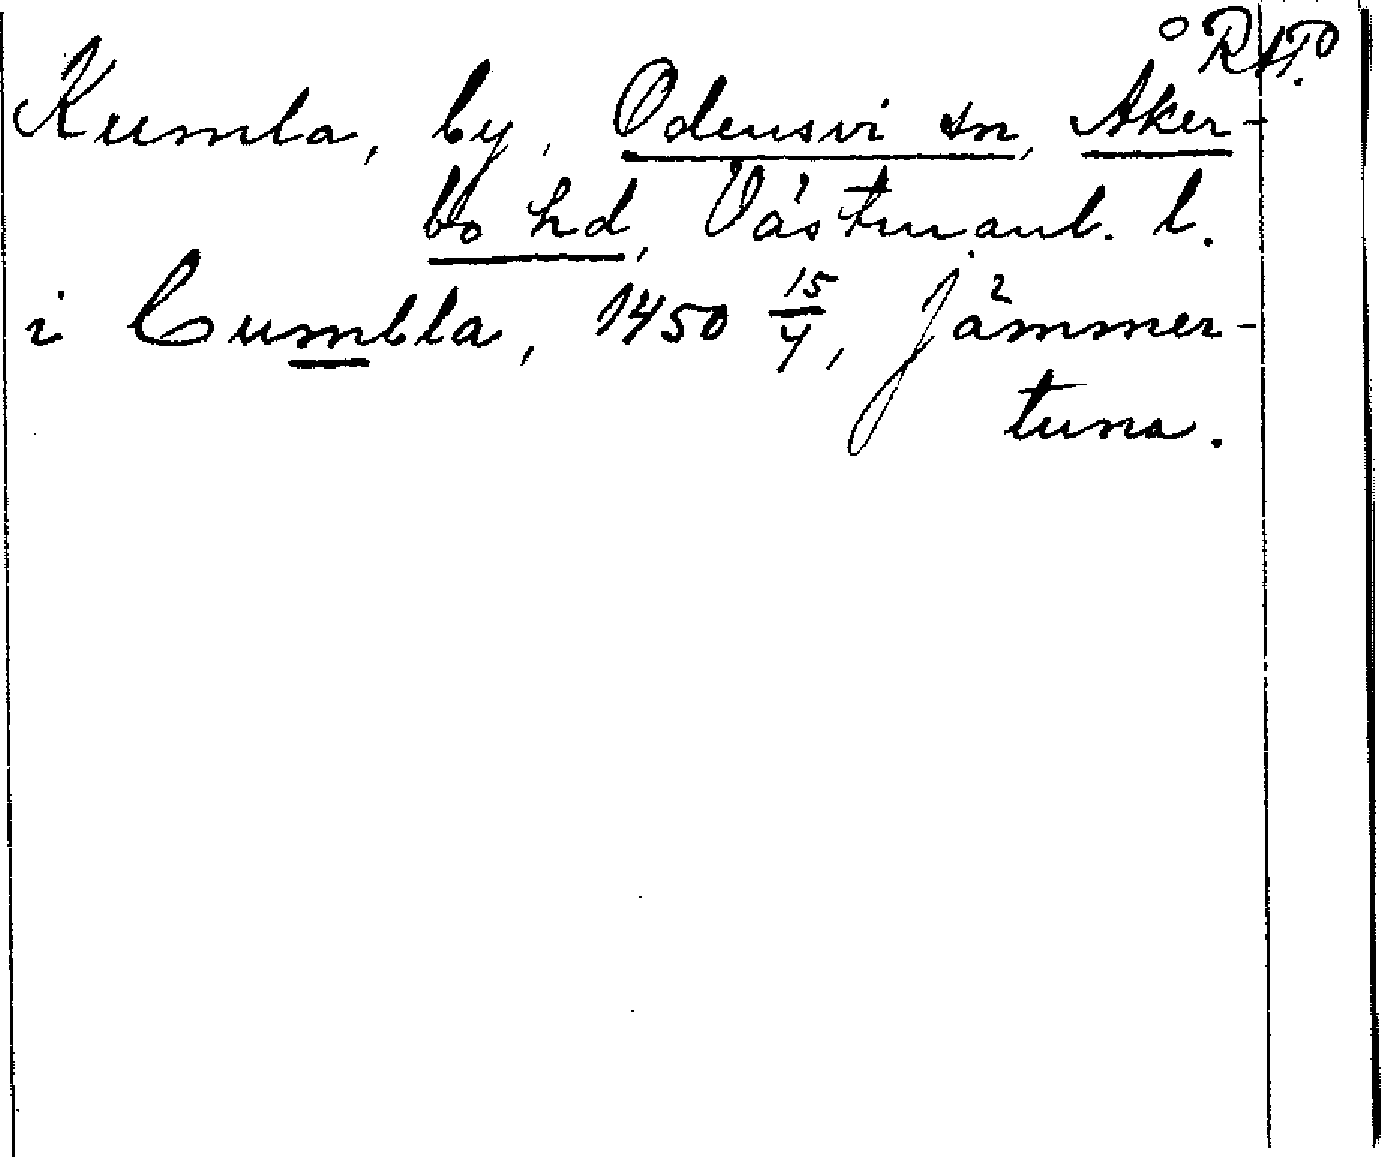 RAP.
Kumla, by, Odensvi sn, Åker-
bo hd, Västmanl. l.
i Cumbla, 1450 15/4, Jämmer-
tuna.